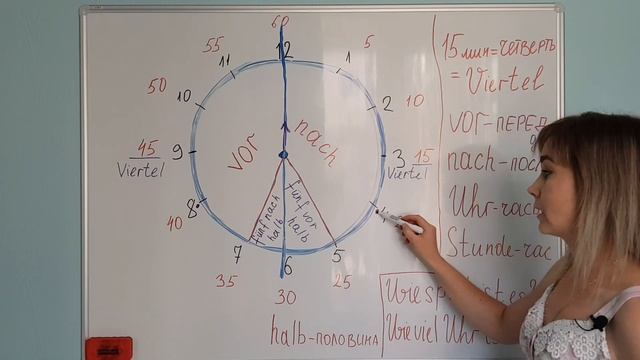 60
12
55
11
1
5
50
10
2
10
vor
nach
45
Viertel
9
3
15
Viertel
8
40
fünf nach halb
fünf vor halb
7
5
35
6
25
30
halb-половина
15 мин=четверть
= Viertel
vor-ПЕРЕД
nach-
Uhr-час
Stunde-
Wie
Wieviel Uhr